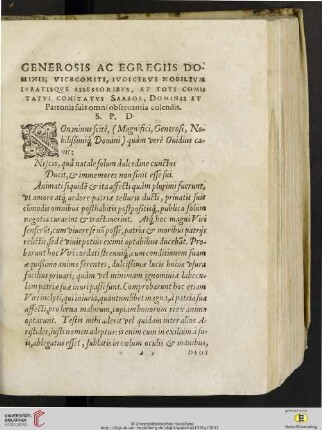 GENEROSIS AC EGREGIIS DO-
MINIS, VICECOMITI, IVDICIBVS NOBILIVM
IVRATISQVE ASSESSORIBVS, ET TOTI COMI
TATVI COMITATVS SAAROS, DOMINIS ET
Patronis suis omni obseruantia colendis.
S. P. D
NOn minus scitè, (Magnifici, Generosi, No-
bilissimiq; Domini) quàm verè Ouidius ca-
nit;
Nescio, quâ natale solum dulcedine cunctos
Ducit, & immemores non sinit esse sui.
Animati siquidē & ita affecti quàm plurimi fuerunt,
vt amore atq; ardore patriæ telluris ducti, priuatis suis
cōmodis omnibus posthabitis postpositisq;, publica solùm
negotia curarint & tractauerint. Atq; hoc magni Viri
senserūt, cum viuere se nō posse, patria & moribus patrijs
relictis sed è viuis potius eximi optabilius ducebāt. Pro-
barunt hoc Viri cordati strenuiq;, cum conditionem suam
æquissimo animo ferentes, dulcissimæ lucis huius vsura
priuari; quàm vel minimam ignominiæ labecu-
lam patriæ suæ inuri passi sunt. Comprobarunt hoc etiam
Viri inclyti, qui iniuria, quantumlibet magna, à patria sua
affecti, proserna malorum, copiam bonorum ei ex animo
optarunt. Testis mihi aderit vel quidam inter alios A-
ristides, iusti nomen adeptus: is enim cum in exilium à su-
is, ablegatus esset, sublatis in cœlum oculis & manibus,
A 2
DEOS
UNIVERSITÄTS-
BIBLIOTHEK
HEIDELBERG
© Universitätsbibliothek Heidelberg